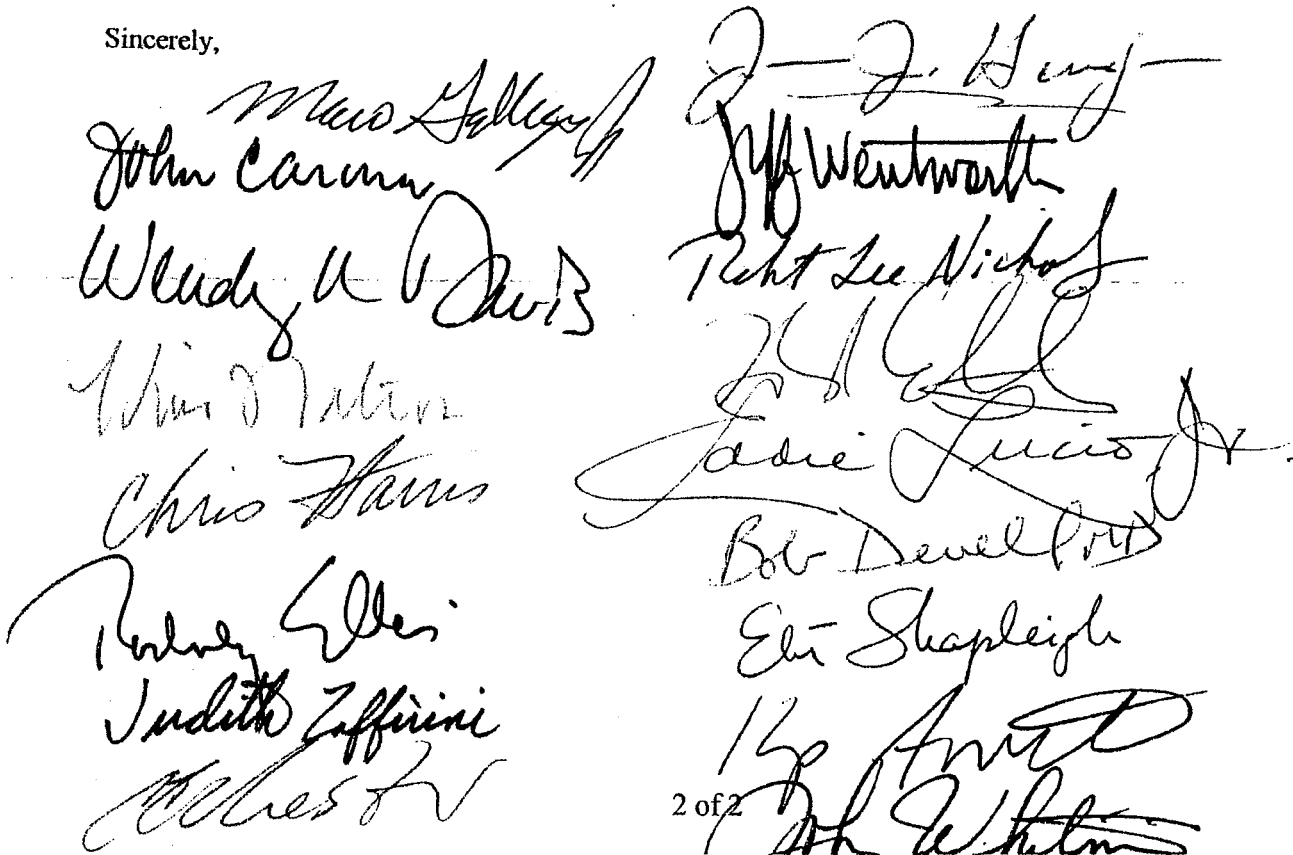 Sincerely,
Mario Gallegos Jr
John Carona
Wendy R Davis
Chris Harris
Rodney Ellis
Judith Zaffirini
Jeff Wentworth
Robt Lee Nichols
Eddie Lucio Jr.
Bob Deuell MD
Eliot Shapleigh
Kip Averitt
John Whitmire
2 of 2